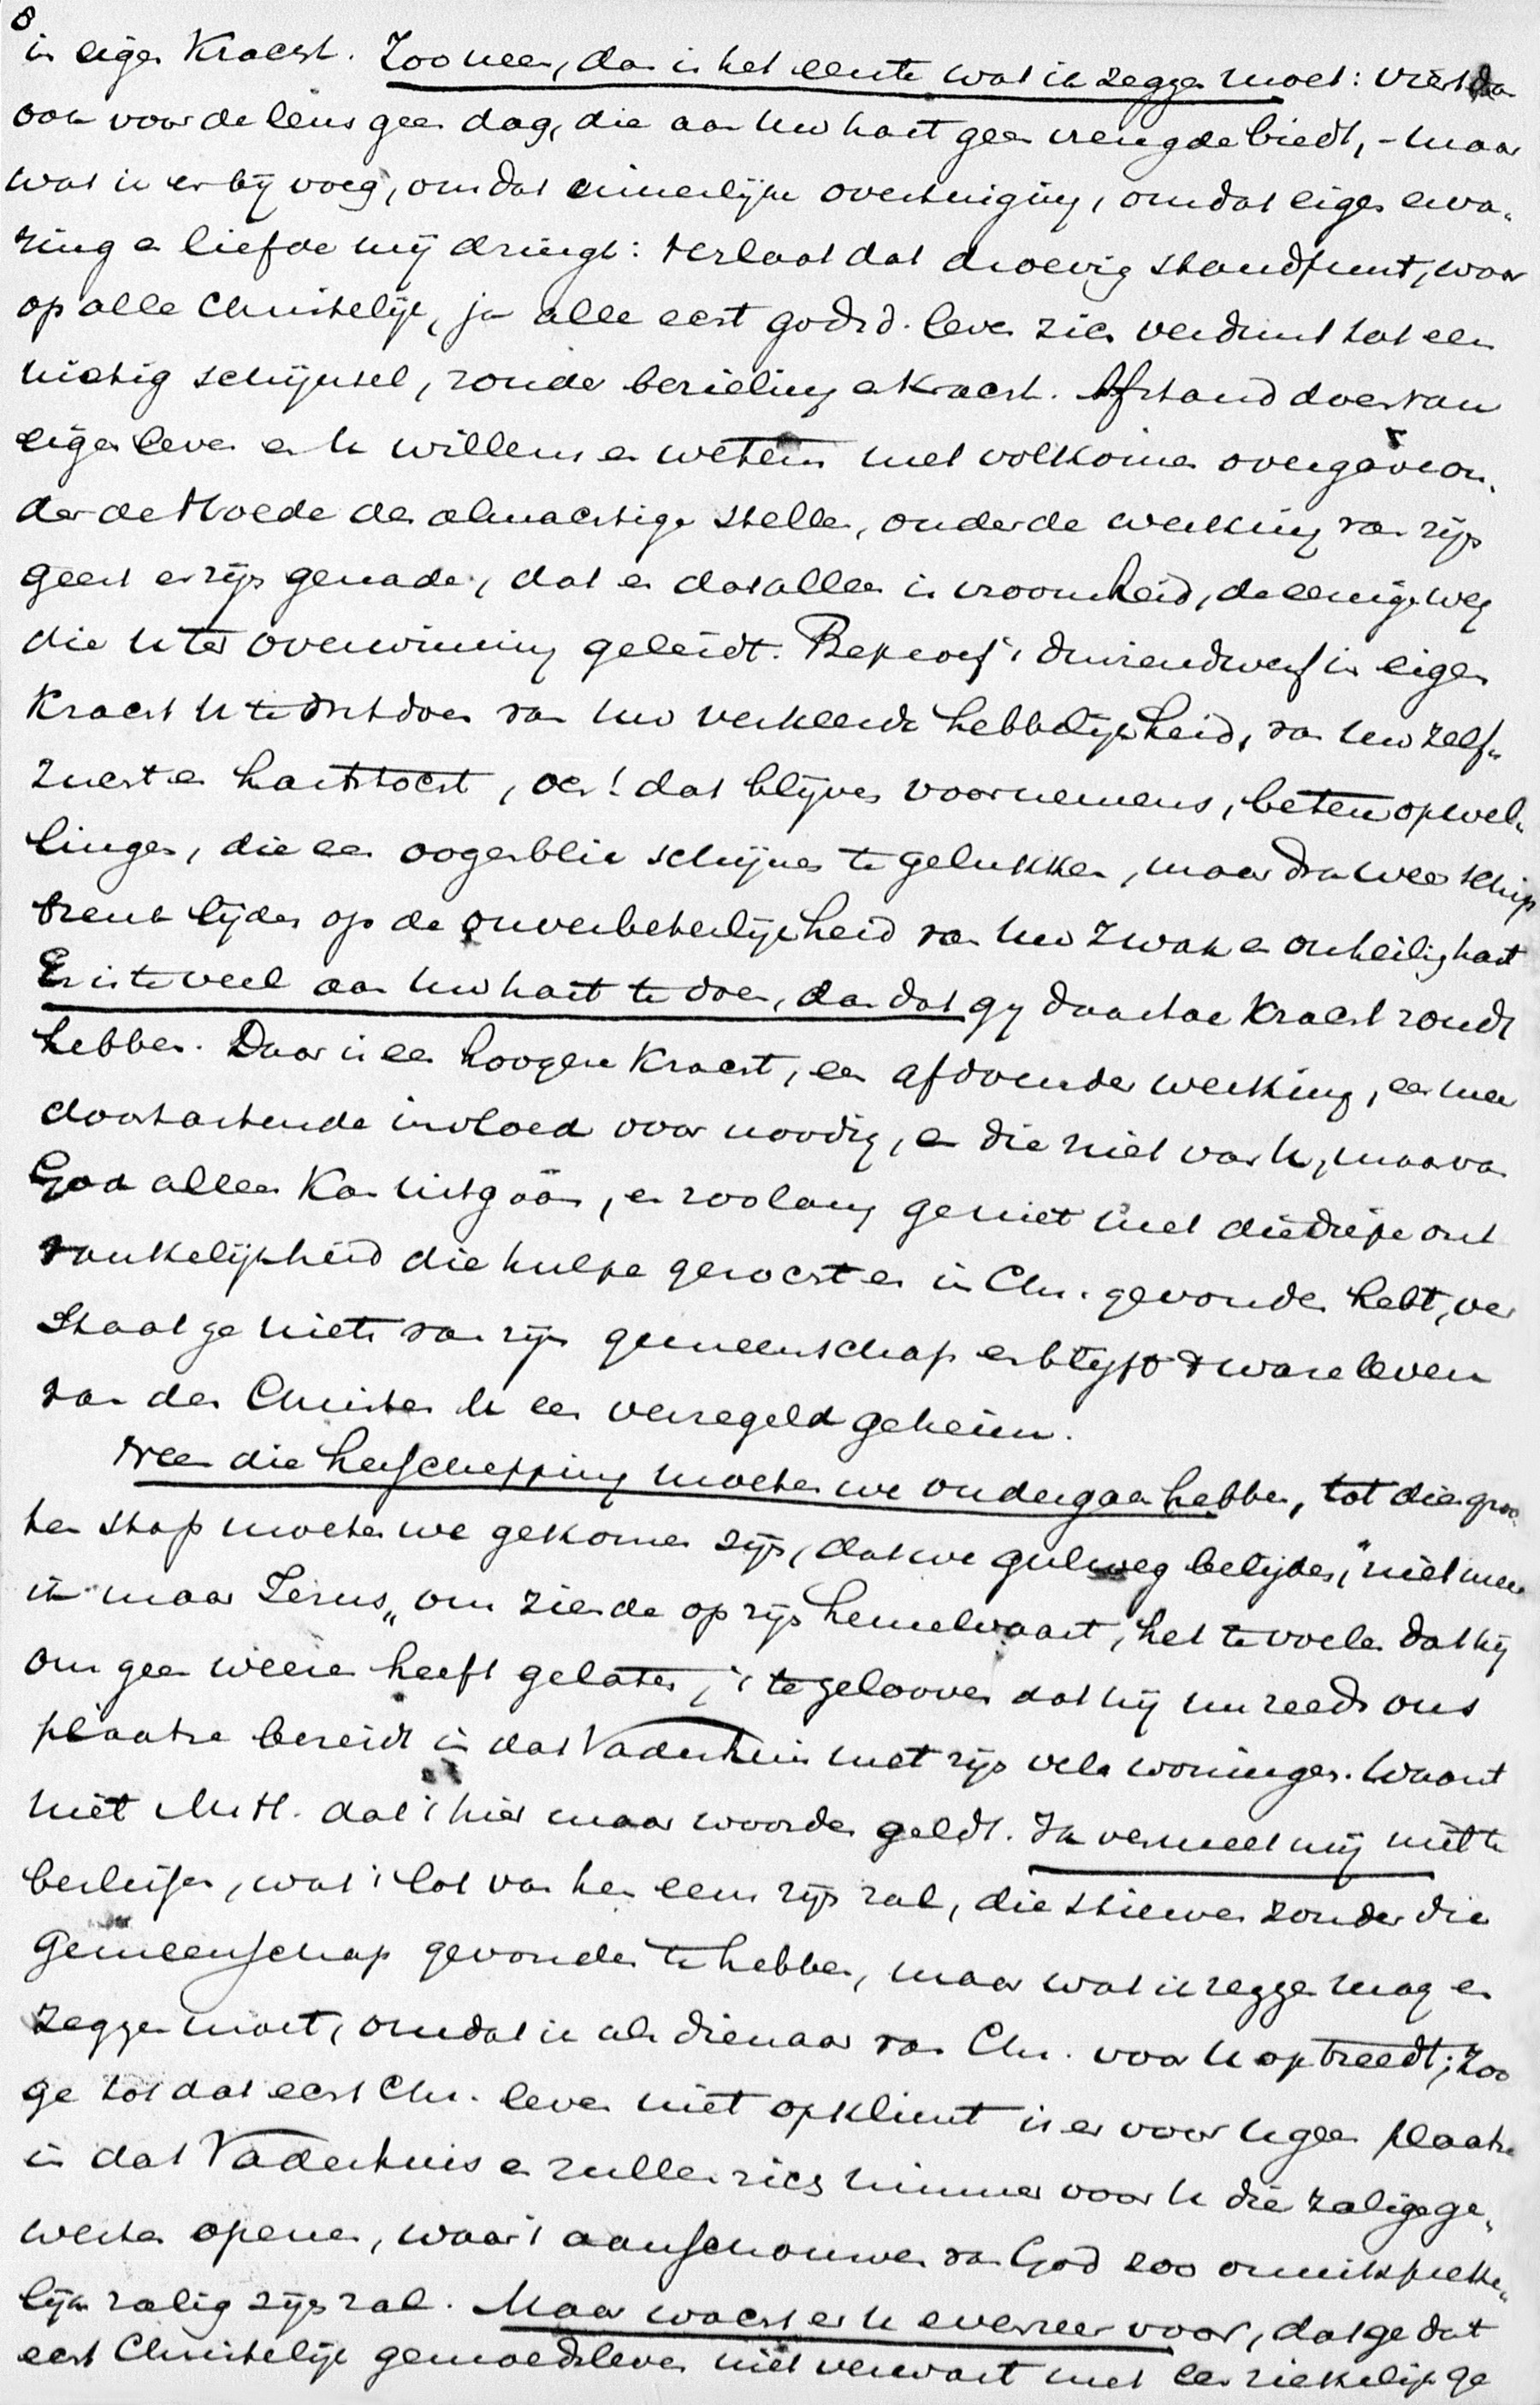 8
in eigen kracht. Zoo neen, dan is het eerste wat ik zeggen moet: viert dan
ook voor de leus geen dag, die aan uw hart geen vreugde biedt, - maar
wat ik er bij voeg, omdat innerlijke overtuiging, omdat eigen erva-
ring en liefde mij dringt: verlaat dat droevig standpunt, waar
op alle Christelijk, ja alle echt godsd. leven zich verdunt tot een
nietig schijnsel, zonder bezieling en kracht. Afstand doen van
eigen leven en U willens en wetens met volkomen overgave on-
der de hoede des almachtige stellen, onder de werking van zijn
geest en zijn genade, dat en dat alleen is vroomheid, de eenige weg
die U ter overwinning geleidt. Beproef 't duizendwerf in eigen
kracht U te ontdoen van uw verkeerde hebbelijkheid, van uw zelf-
zucht en hartstocht, och! dat blijven voornemens, betere opwel-
lingen, die een oogenblik schijnen te gelukken, maar dra weer schip
breuk lijden op de onverbeterlijkheid van uw zwak en onheilig hart
Er is te veel aan uw hart te doen, dan dat gij daartoe kracht zoudt
hebben. Daar is een hoogere kracht, een afdoender werking, een meer
doortastende invloed voor noodig, en die niet van U, maar van
God alleen kan uitgaan, en zoolang ge niet met die diepe ont
vankelijkheid die hulpe gezocht en in Chr. gevonden hebt, ver
staat ge niets van zijn gemeenschap en blijft 't ware leven
van den Christen U een verzegeld geheim.
Neen die herschepping moeten we ondergaan hebben, tot dien groo-
ten stap moeten we gekomen zijn, dat we gulweg belijden, "niet meer
ik maar Jezus" om ziende op zijn hemelvaart, het te voelen dat hij
ons geen weezen heeft gelaten, 't te gelooven dat hij nu reeds ons
plaatse bereidt in dat Vaderhuis met zijn vele woningen. Waant
niet M.H. dat 't hier maar woorden geldt. Ik vermeet mij niet te
beslissen, wat 't lot van hen eens zijn zal, die stierven zonder die
gemeenschap gevonden te hebben, maar wat ik zeggen mag en
zeggen moet, omdat ik als dienaar van Chr. voor U optreedt; zoo
ge tot dat echt Chr. leven niet opklimt is er voor U geen plaatse
in dat Vaderhuis en zullen zich nimmer voor U die zalige ge-
westen openen, waar 't aanschouwen van God zoo onuitspreke-
lijk zalig zijn zal. Maar wacht er U evenzeer voor, dat ge dat
echt Christelijk gemoedsleven niet verwart met een ziekelijk ge